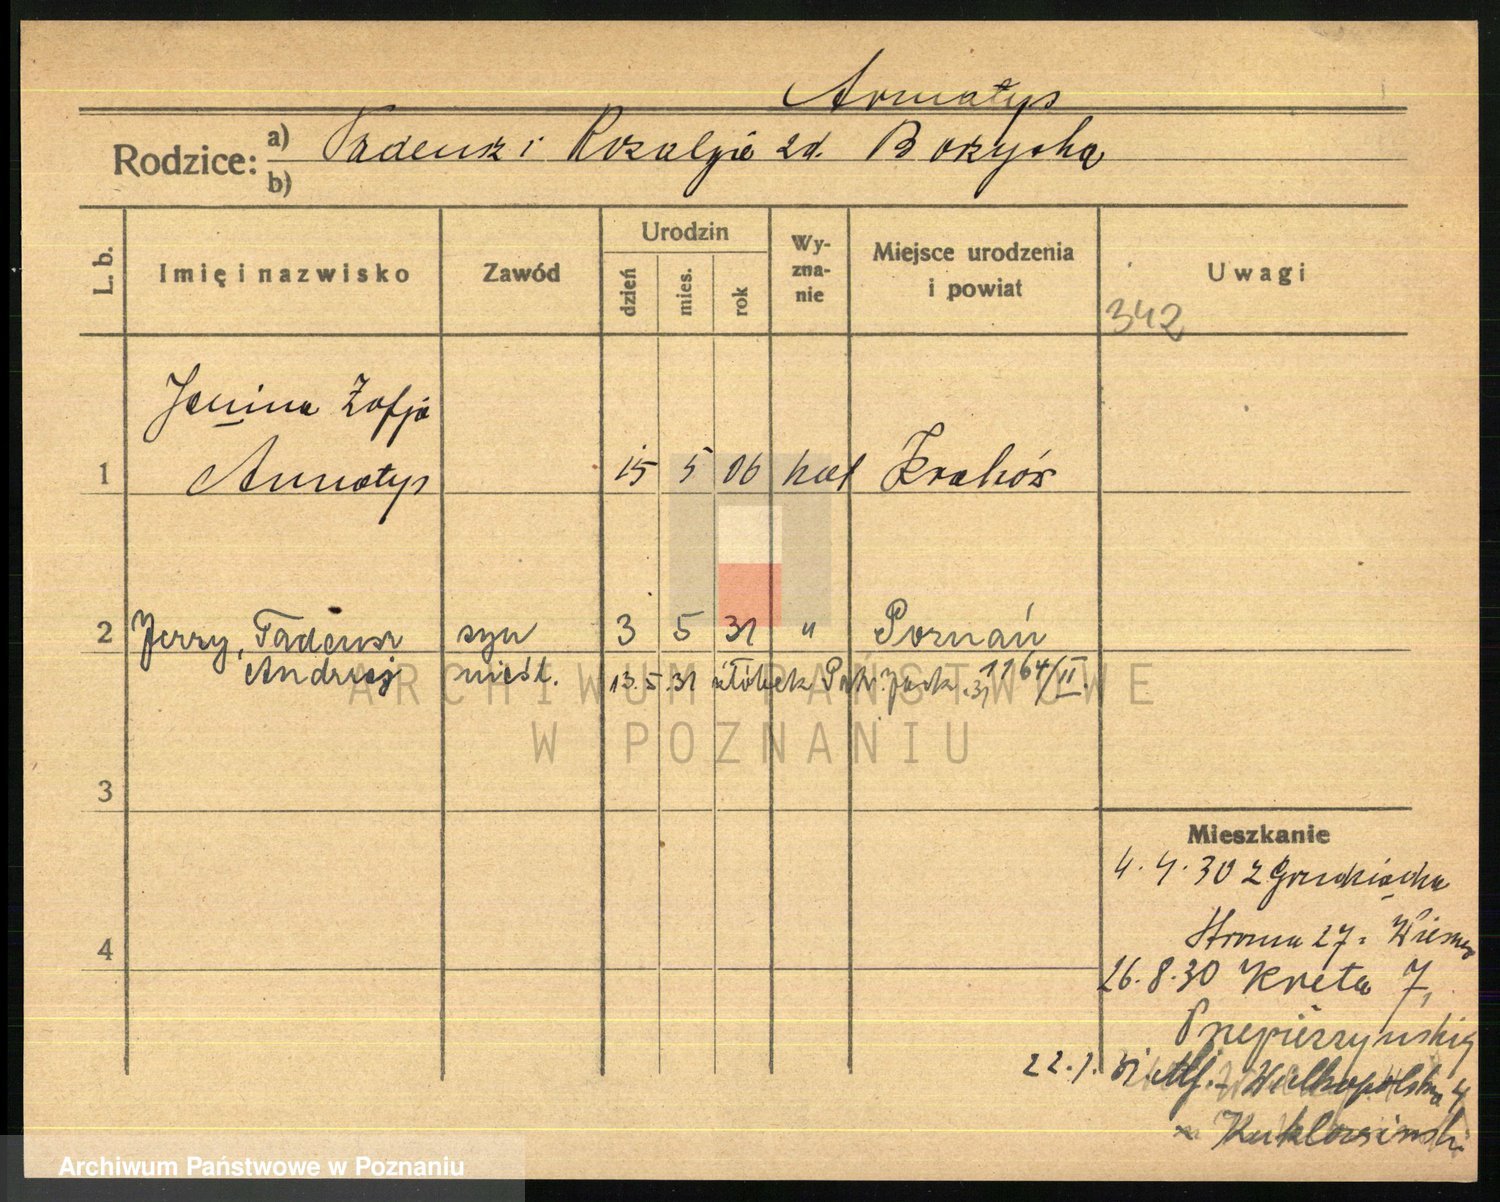 Armatys
Rodzice: a) Tadeusz i Rozalja zd. Bożyska
b)
L. b.
Imię i nazwisko
Zawód
Urodzin
dzień
mies.
rok
Wy-
zna-
nie
Miejsce urodzenia
i powiat
Uwagi
342
Janina Zofja
1 Armatys 15 5 06 kat Kraków
2 Jerzy, Tadeusz syn 3 5 31 " Poznań
Andrzej nieśl. 13.5.31 żłóbek 1164/II.
3
4
Mieszkanie
4.4.30 z Grudziądza
Stroma 27.
26.8.30 Kreta 7,
22.1.31 Wielkopolska 4
Archiwum Państwowe w Poznaniu
ARCHIWUM PAŃSTWOWE
W POZNANIU